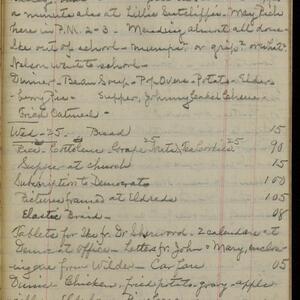 a minute also at Lillie Sutcliffe's - May Rich
here in P.M. 2-3 - Mending almost all done -
Ike out of school - mumps? or grip? or what?
Nelson went to school -
Dinner - Bean Soup - Pop Overs - Potato - Elder-
berry Pie - Supper, Johnny Cake & Cheese -
Fried Oatmeal -
Wed - 25. Bread 15
Rec. Cottolene 25 Grape Nuts 25 90
Supper at church 15
Subscription to Democrats 1 00
Pictures framed at Eldreds 1 05
Elastic Braid - 08
Tablets for Ike fr. Dr. Sherwood - 2 calendars at
Democrat office - Letter fr. John & Mary, enclos-
ing one from Wilder - Car fare 05
Dinner Chicken, fried potato - gravy - apple